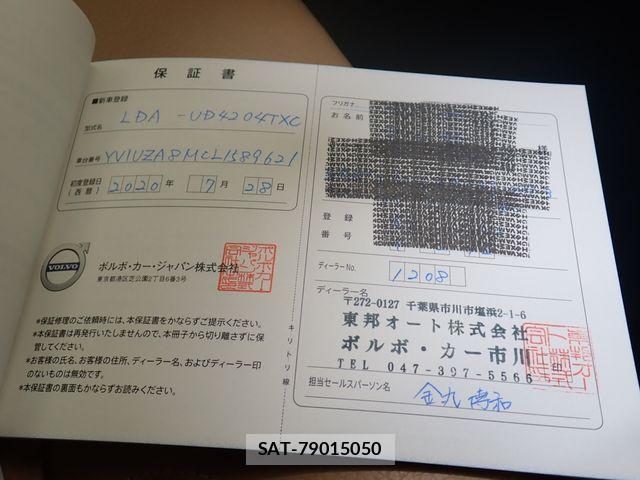 保証書
■新車登録
型式名 LDA-UD4204TXC
車台番号 YV1UZA8MCL1589621
初度登録日(西暦) 2020年 7月 28日
VOLVO
ボルボ・カー・ジャパン株式会社
東京都港区芝公園2丁目6番3号
*保証修理のご依頼時には、本保証書をかならずご提示ください。
*本保証書は再発行いたしませんので、本冊子から切り離さずに保
管してください。
*お客様の氏名、お客様の住所、ディーラー名、およびディーラー印
のないものは無効です。
*本保証書の裏面もかならずお読みください。
キリトリ線
フリガナ
お名前
様
登録
番号
ディーラーNo. 1208
ディーラー名
〒272-0127 千葉県市川市塩浜2-1-6
東邦オート株式会社
ボルボ・カー市川
印
TEL 047-397-5566
担当セールスパーソン名
SAT-79015050